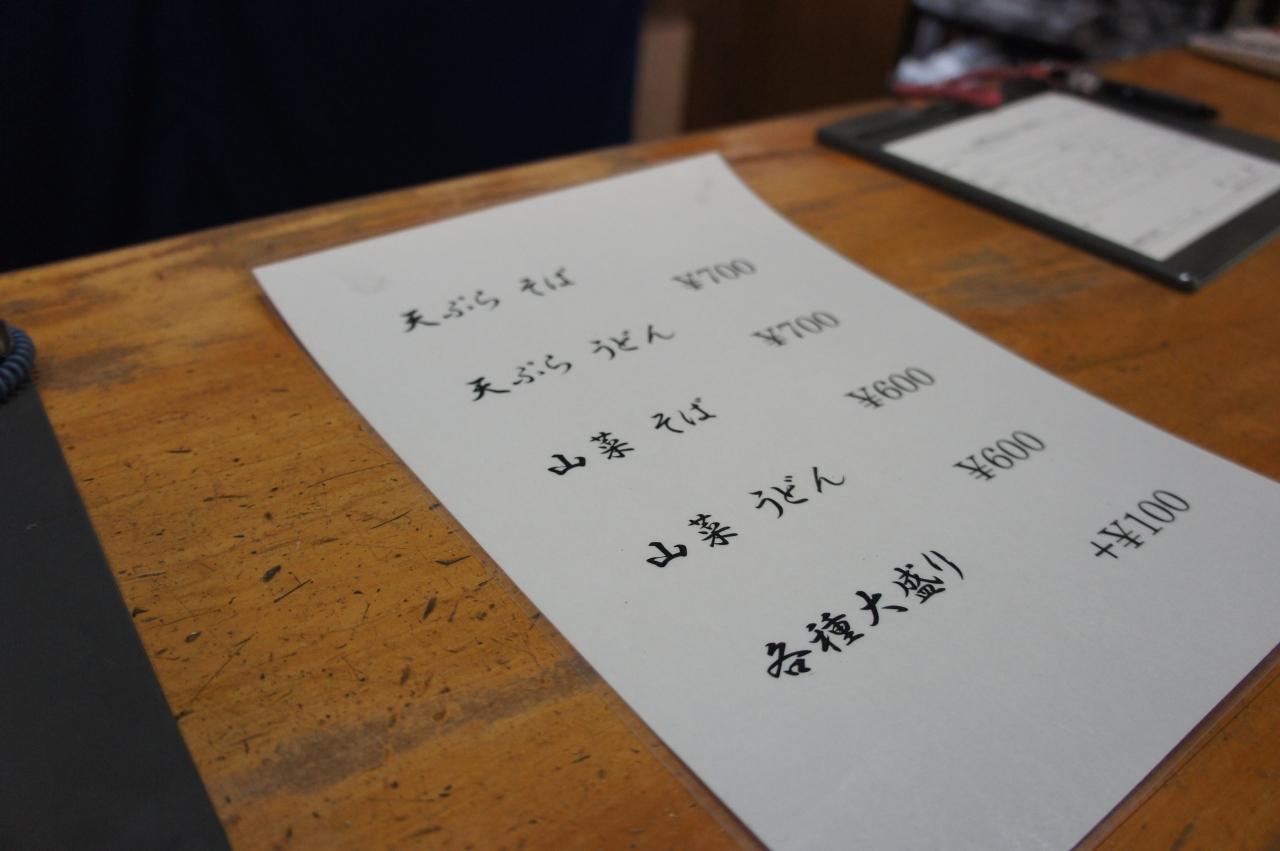 天ぷら そば ¥700
天ぷら うどん ¥700
山菜 そば ¥600
山菜 うどん ¥600
各種大盛り +¥100